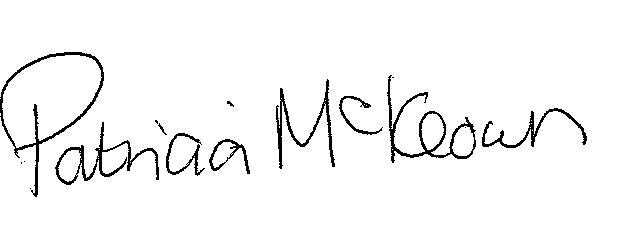 Patricia McKeown